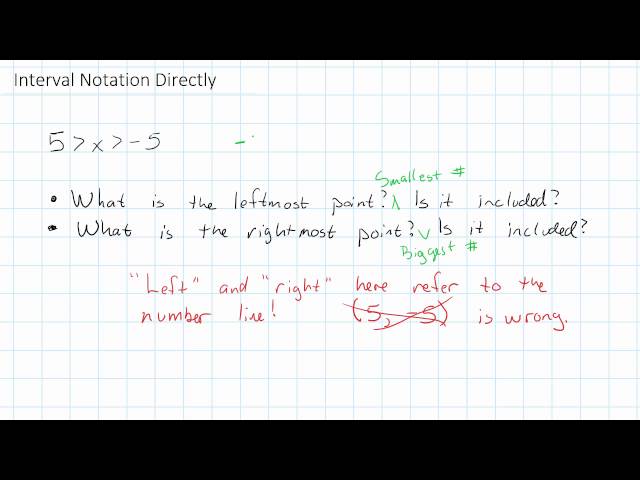 Interval Notation Directly
5 > x > -5
Smallest #
• What is the leftmost point? Is it included?
• What is the rightmost point? Is it included?
Biggest #
"Left" and "right" here refer to the
number line! (5, -5) is wrong.